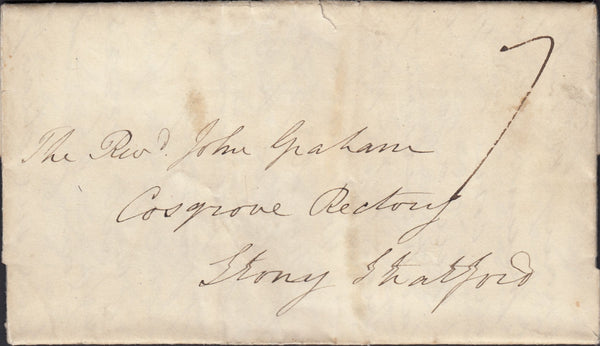 7
The Revd. John Graham
Cosgrove Rectory
Stony Stratford